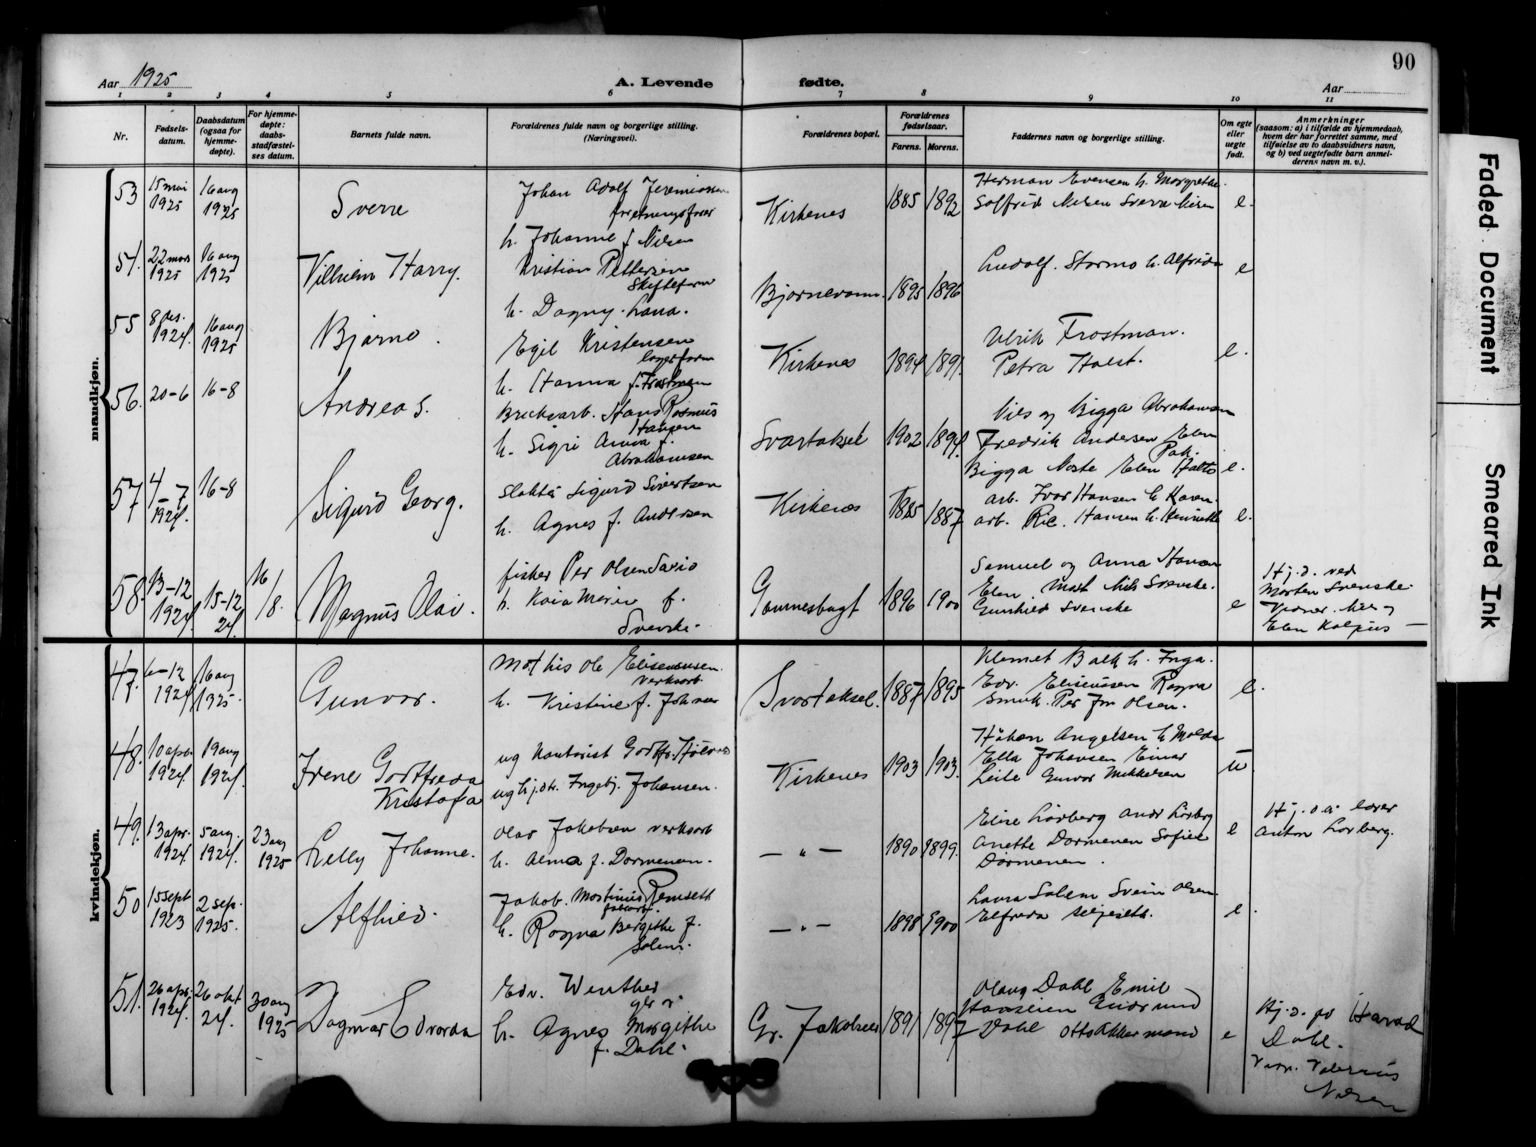 90
Aar 1925
A. Levende fødte.
Aar
1 2 3 4 5 6 7 8 9 10 11
Nr.
Fødsels-
datum.
Daabsdatum
(ogsaa for
hjemme-
døpte).
For hjemme-
døpte:
daabs-
stadfæstel-
ses datum.
Barnets fulde navn.
Forældrenes fulde navn og borgerlige stilling.
(Næringsvei).
Forældrenes bopæl.
Forældrenes
fødselsaar.
Farens. Morens.
Faddernes navn og borgerlige stilling.
Om egte
eller
uegte
født.
Anmerkninger
(saasom: a) i tilfælde av hjemmedaab,
hvem der har forrettet samme, med
tilføielse av to daabsvidners navn,
og b) ved uegtefødte barn anmel-
derens navn m. v.).
mandkjøn.
53
15 mai
1925
16 aug
1925
Sverre
Johan Adolf Jeremiassen
forretningsfører
h. Johanne f. Nilsen
Kirkenes
1885 1892
Herman Evensen h. Margrethe
Solfrid Nilsen Sverre Nilsen
e.
54.
22 mars
1925
16 aug
1925
Vilhelm Harry.
Kristian Pettersen
h. Dagny
Bjørnevann.
1895 1896
Ludolf. Stormo h. Alfrida
e
55
8 des.
1924.
16 aug
1925
Bjarne.
Egil Kristensen
lagerform
h. Hanna f. Frostman
Kirkenes
1894 1891.
Ulrik Frostman.
Petra Holst.
e.
56.
20-6
16-8
Andreas.
Hans Rasmus
Hansen
h. Sigri Anna f.
Abrahamsen
Svartaksel
1902 1894.
Nils og Bigga Abrahamsen
Fredrik Andersen Elen
Bigga Elen
e.
57
4-7
1924.
16-8
Sigurd Georg.
Slakter Sigurd Sivertsen
h. Agnes f. Andersen
Kirkenes
1885 1887
arb. Ivar Hansen h. Karen.
arb. Hansen h. Henriette
e.
58.
13-12
1924.
15-12
24.
16/8.
Magnus Olai.
fisker Per Olsen
h. Kaia Marie f.
Svenske.
1896 1900
Samuel og Anna Hansen
Elen Nils Svenske.
Gunhild Svenske
e
Hj. d. ved
Morten Svenske.
Elen Kolpus
kvindekjøn.
47.
6-12
1924
16 aug
1925.
Gunvor.
Mathis Ole Eliseussen.
verksarb.
h. Kristine f. Johnsen
Svartaksel.
1887 1895
Klemet Balk h. Inga.
Edv. Eliseusen Ragna
Per Jon Olsen.
e.
48.
10 apr.
1924.
19 aug
1924.
Irene Gottfreda
Kristofa
ug kontorist Gottfr.
ug hj.dtr. Ingebj. Johansen.
Kirkenes
1903 1903.
Håkon Angelsen h. Molda
Ella Johansen Einar
Gunvor Mikkelsen
u.
49.
13 apr.
1924.
5 aug.
1924.
23 aug
1925
Lelly Johanne.
Olav Jakobsen verksarb
h. Alma f. Dørmenen.
— „ —
1890 1899.
Elise Lorberg Andr Lorberg
Anette Dørmenen Sofie
Dørmenen.
e
Hj. d. av lærer
Anton Lorberg.
50
15 sept
1923
2 sep.
1925.
Alfhild.
Jakob. Martinius Remseth
h. Ragna Bergithe f.
Solem.
— „ —
1898 1900
Laura Solem Svein Olsen
Elfreda
e.
51.
26 apr.
1924.
26 okt
24.
30 aug
1925
Dagmar Edvarda
Edv. Winther
h. Agnes Margithe
f. Dahl.
Gr. Jakobselv
1891 1897
Olaug Dahl Emil
Gudrund
Dahl Otto Akkermand
e
Hj. d. av Harald
Dahl.
Nilsen
Faded Document
Smeared Ink